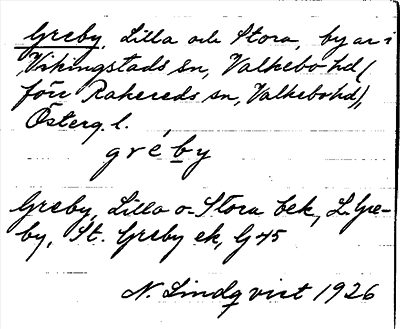 Greby, Lilla och Stora, byar i
Vikingstads sn, Valkebo hd (
förr Rakereds sn, Valkebo hd),
Österg. l.
gréby
Greby, Lilla o. Stora bek, L. Gre-
by, St. Greby ek, G 45
N. Lindqvist 1926